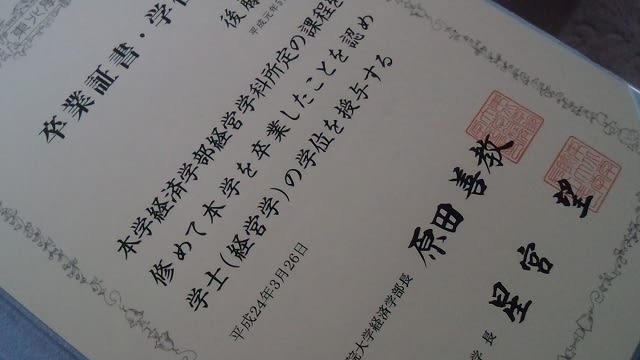 卒業証書・学位
後藤
平成元年
本学経済学部経営学科所定の課程を
修めて本学を卒業したことを認め
学士(経営学)の学位を授与する
平成24年3月26日
大学経済学部長 原田善教
学長 星宮望